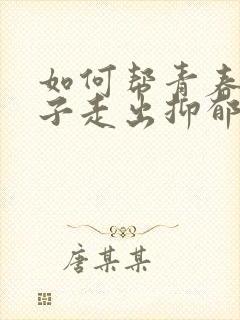 如何帮青春
子走出抑郁
唐某某